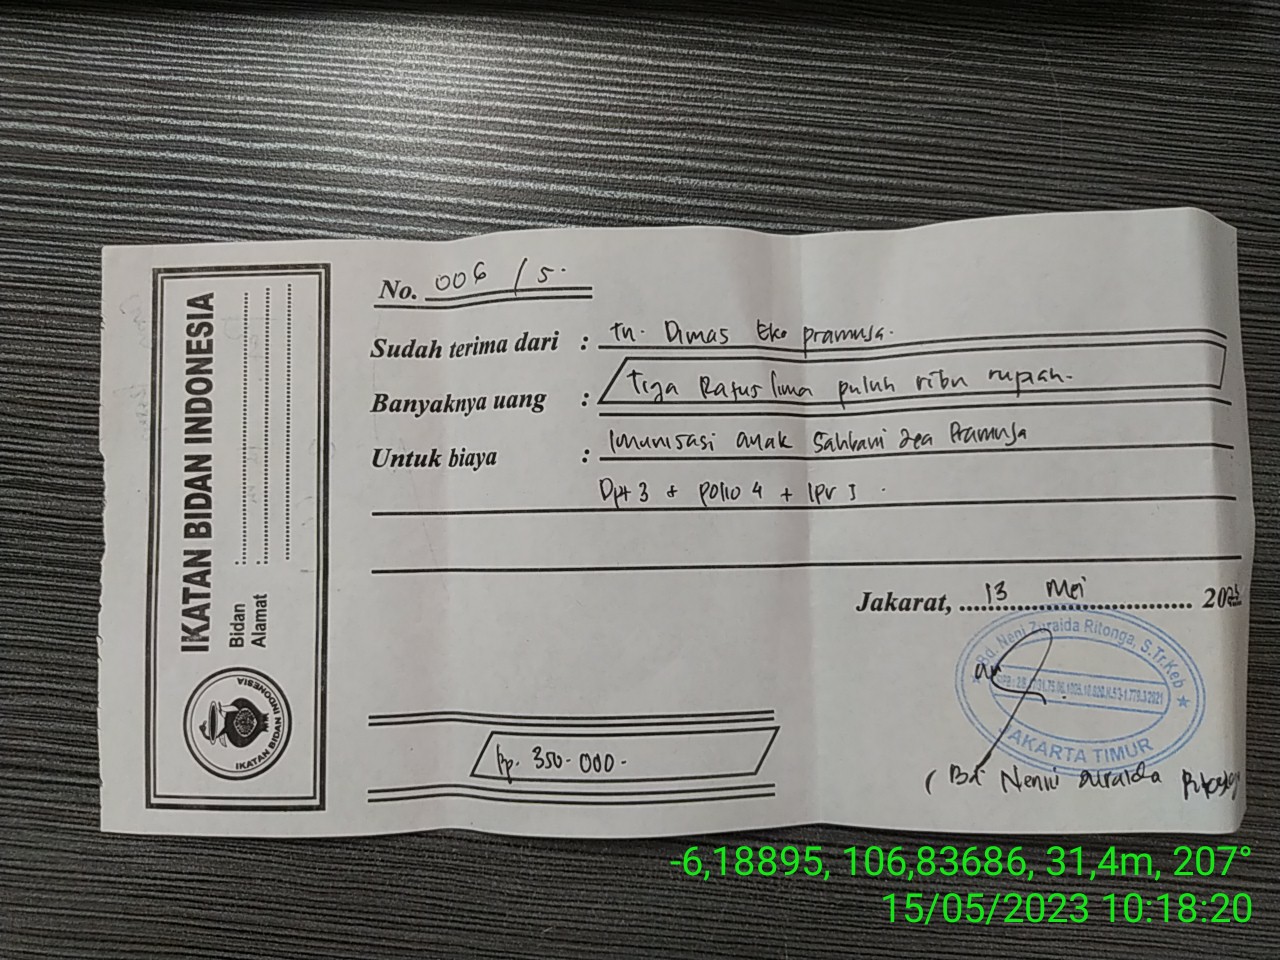 IKATAN BIDAN INDONESIA
Bidan :
Alamat :
IKATAN BIDAN INDONESIA
No. 006 / 5.
Sudah terima dari : tn. Dimas Eko pramusa.
Banyaknya uang : Tiga Ratus lima puluh ribu rupiah.
Untuk biaya : Imunisasi anak Sahbani Zea Pramusa
Dpt 3 + polio 4 + IPV I.
Jakarat, 13 Mei 2023
Bd. Neni Zuraida Ritonga, S.Tr.Keb
JAKARTA TIMUR
Rp. 350.000.
( Bd. Nenni Zuraida
-6,18895, 106,83686, 31,4m, 207°
15/05/2023 10:18:20